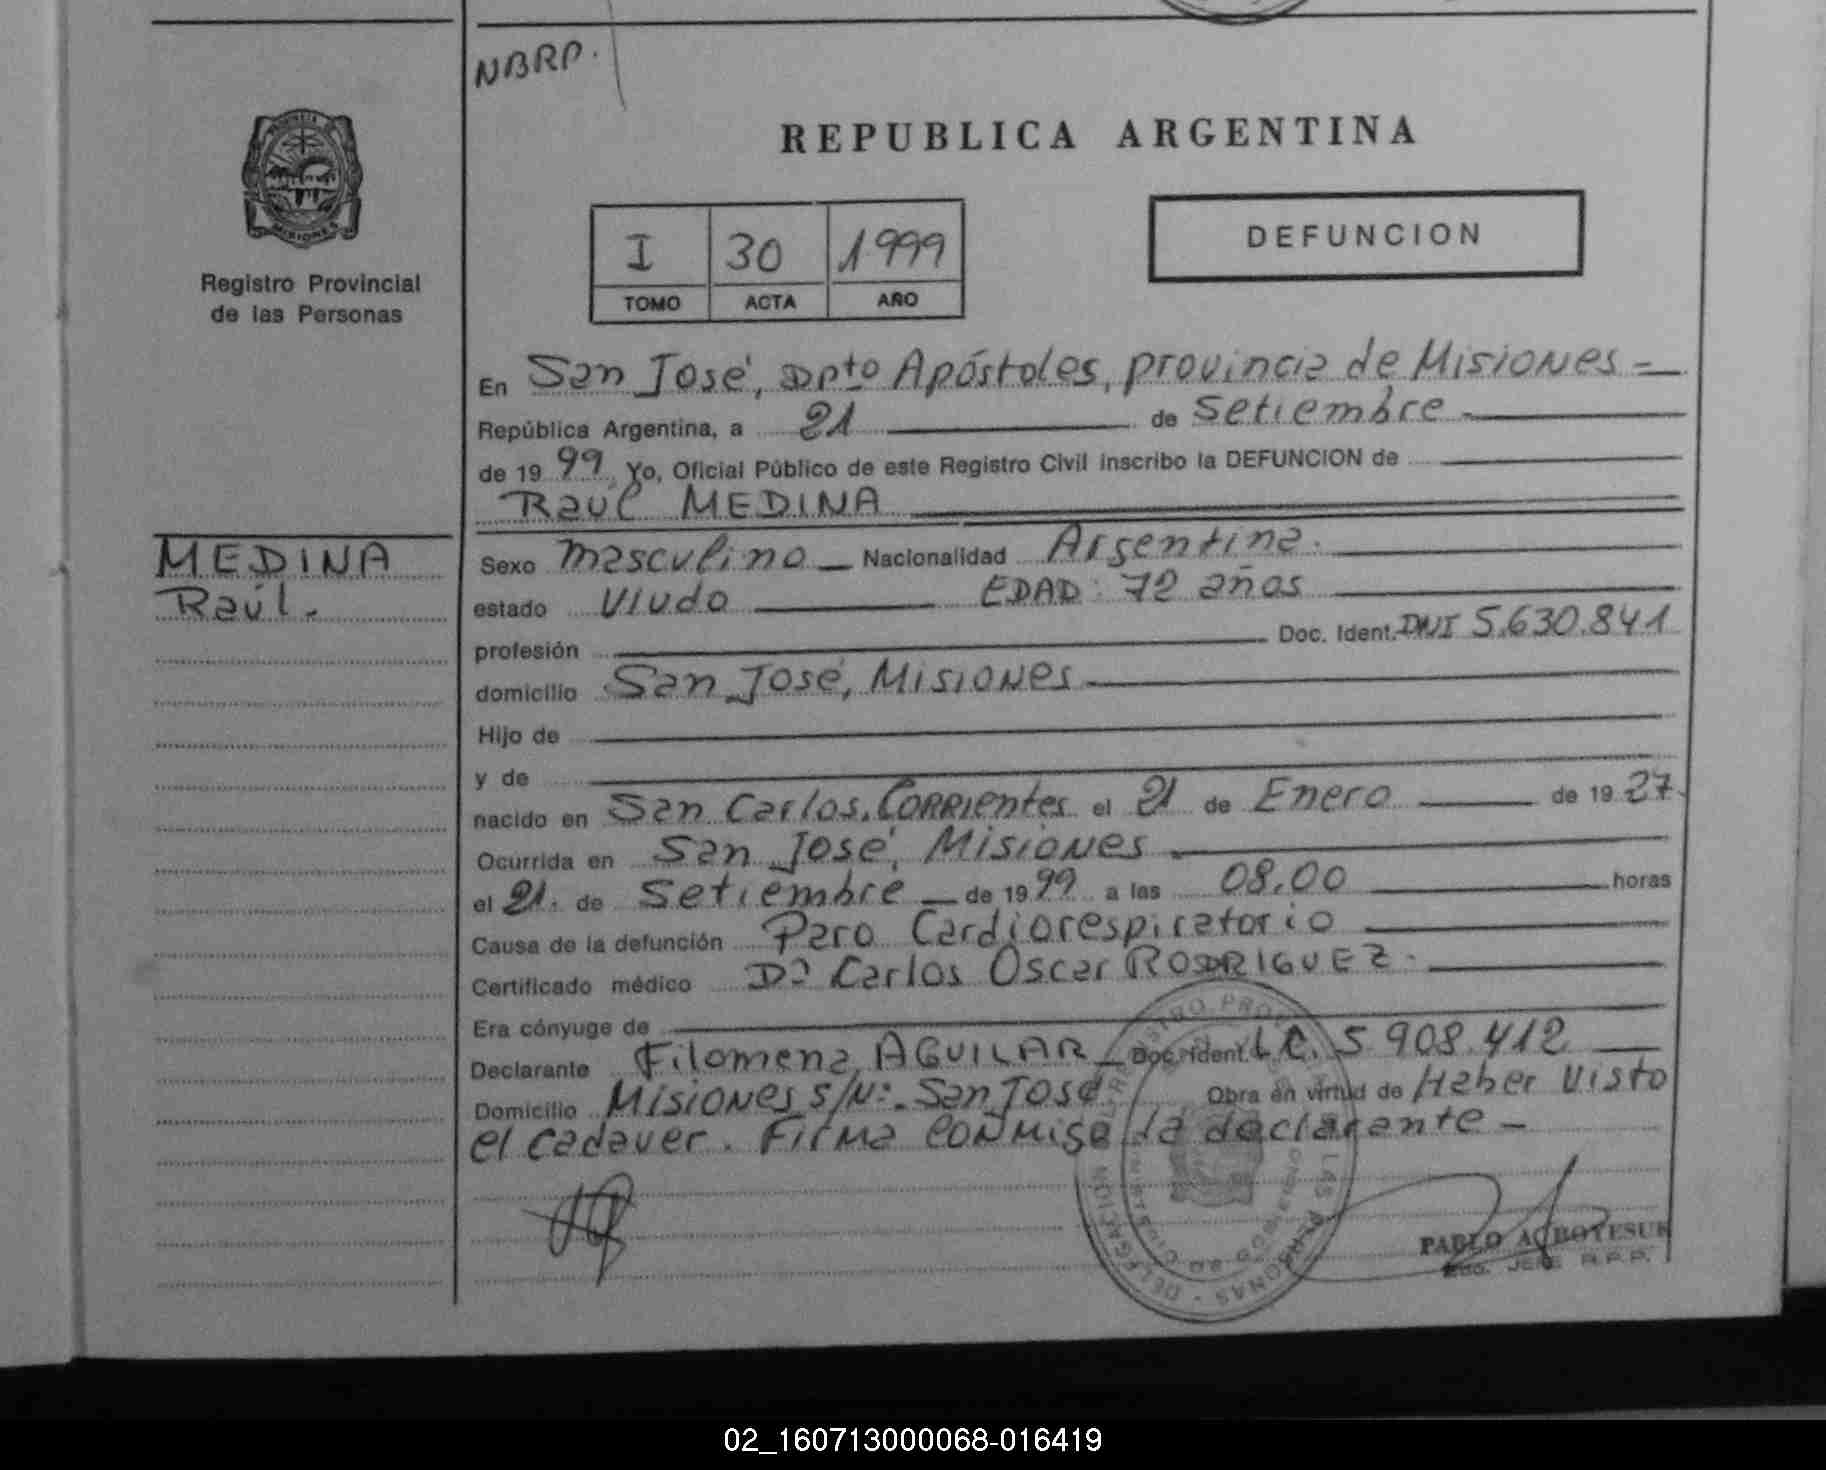 NBRP.
REPUBLICA ARGENTINA
PROVINCIA DE
MISIONES
Registro Provincial
de las Personas
I 30 1999
TOMO ACTA AÑO
DEFUNCION
En San José, Dpto Apóstoles, provincia de Misiones =
República Argentina, a 21 de Setiembre
de 19 99, Yo, Oficial Público de este Registro Civil inscribo la DEFUNCION de
Raúl MEDINA
MEDINA
Raúl.
Sexo Masculino Nacionalidad Argentina.
estado Viudo EDAD: 72 años
profesión Doc. Ident. DNI 5.630.841
domicilio San José, Misiones
Hijo de
y de
nacido en San Carlos, Corrientes el 21 de Enero de 19 27.
Ocurrida en San José, Misiones
el 21. de Setiembre de 19 99 a las 08.00 horas
Causa de la defunción Paro Cardiorespiratorio
Certificado médico Dr Carlos Oscar RODRIGUEZ.
Era cónyuge de
Declarante Filomena AGUILAR Doc. Ident. L.C. 5 908.412
Domicilio Misiones s/Nº. San José Obra en virtud de Haber visto
el cadaver. Firma conmigo la declarante -
DELEGACION
LAS PERSONAS
PABLO
JEFE R.P.P.
02_160713000068-016419